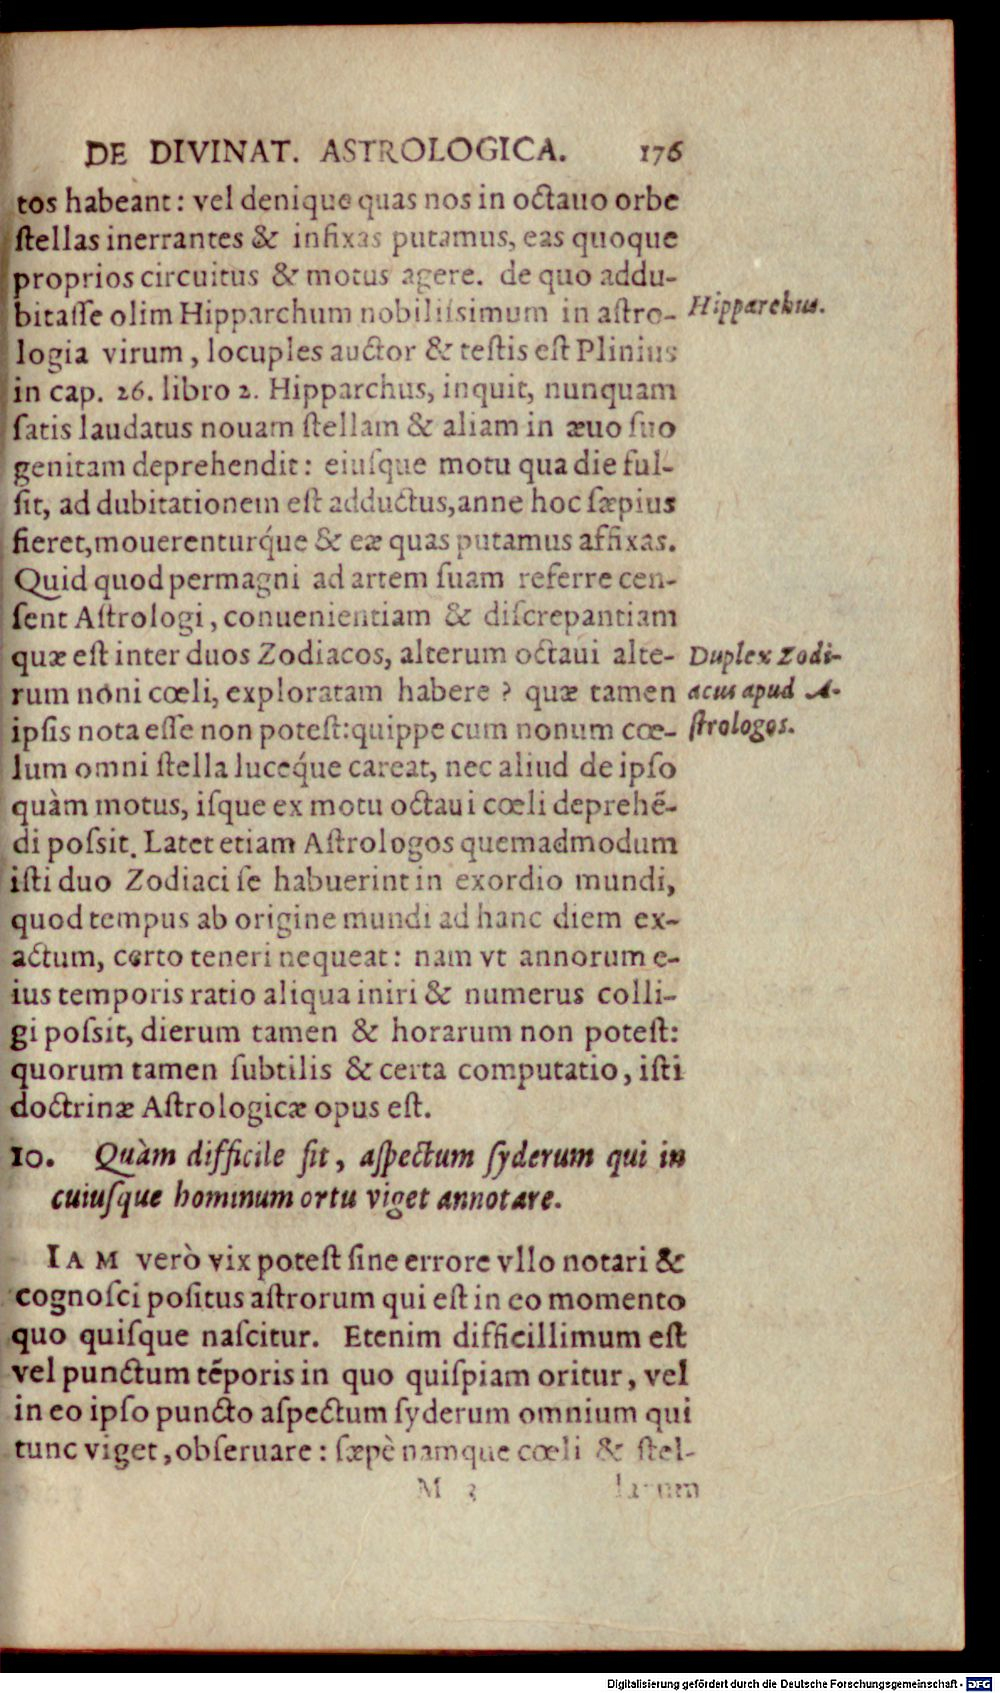 DE DIVINAT. ASTROLOGICA. 176
tos habeant: vel denique quas nos in octauo orbe
ſtellas inerrantes & infixas putamus, eas quoque
proprios circuitus & motus agere. de quo addu-
bitaſſe olim Hipparchum nobiliſsimum in aſtro-
Hipparchus.
logia virum, locuples auctor & teſtis eſt Plinius
in cap. 26. libro 2. Hipparchus, inquit, nunquam
ſatis laudatus nouam ſtellam & aliam in æuo ſuo
genitam deprehendit: eiuſque motu qua die ful-
ſit, ad dubitationem eſt adductus, anne hoc ſæpius
fieret, mouerenturq́ue & eæ quas putamus affixas.
Quid quod permagni ad artem ſuam referre cen-
ſent Aſtrologi, conuenientiam & diſcrepantiam
quæ eſt inter duos Zodiacos, alterum octaui alte-
rum noni cœli, exploratam habere? quæ tamen
ipſis nota eſſe non poteſt: quippe cum nonum cœ-
Duplex Zodi-
acus apud A-
ſtrologos.
lum omni ſtella luceq́ue careat, nec aliud de ipſo
quàm motus, iſque ex motu octaui cœli deprehẽ-
di poſsit. Latet etiam Aſtrologos quemadmodum
iſti duo Zodiaci ſe habuerint in exordio mundi,
quod tempus ab origine mundi ad hanc diem ex-
actum, certo teneri nequeat: nam vt annorum e-
ius temporis ratio aliqua iniri & numerus colli-
gi poſsit, dierum tamen & horarum non poteſt:
quorum tamen ſubtilis & certa computatio, iſti
doctrinæ Aſtrologicæ opus eſt.
10. Quàm difficile ſit, aſpectum ſyderum qui in
cuiuſque hominum ortu viget annotare.
IAM verò vix poteſt ſine errore vllo notari &
cognoſci poſitus aſtrorum qui eſt in eo momento
quo quiſque naſcitur. Etenim difficillimum eſt
vel punctum tẽporis in quo quiſpiam oritur, vel
in eo ipſo puncto aſpectum ſyderum omnium qui
tunc viget, obſeruare: ſæpè namque cœli & ſtel-
M 3 larum
Digitalisierung gefördert durch die Deutsche Forschungsgemeinschaft - DFG